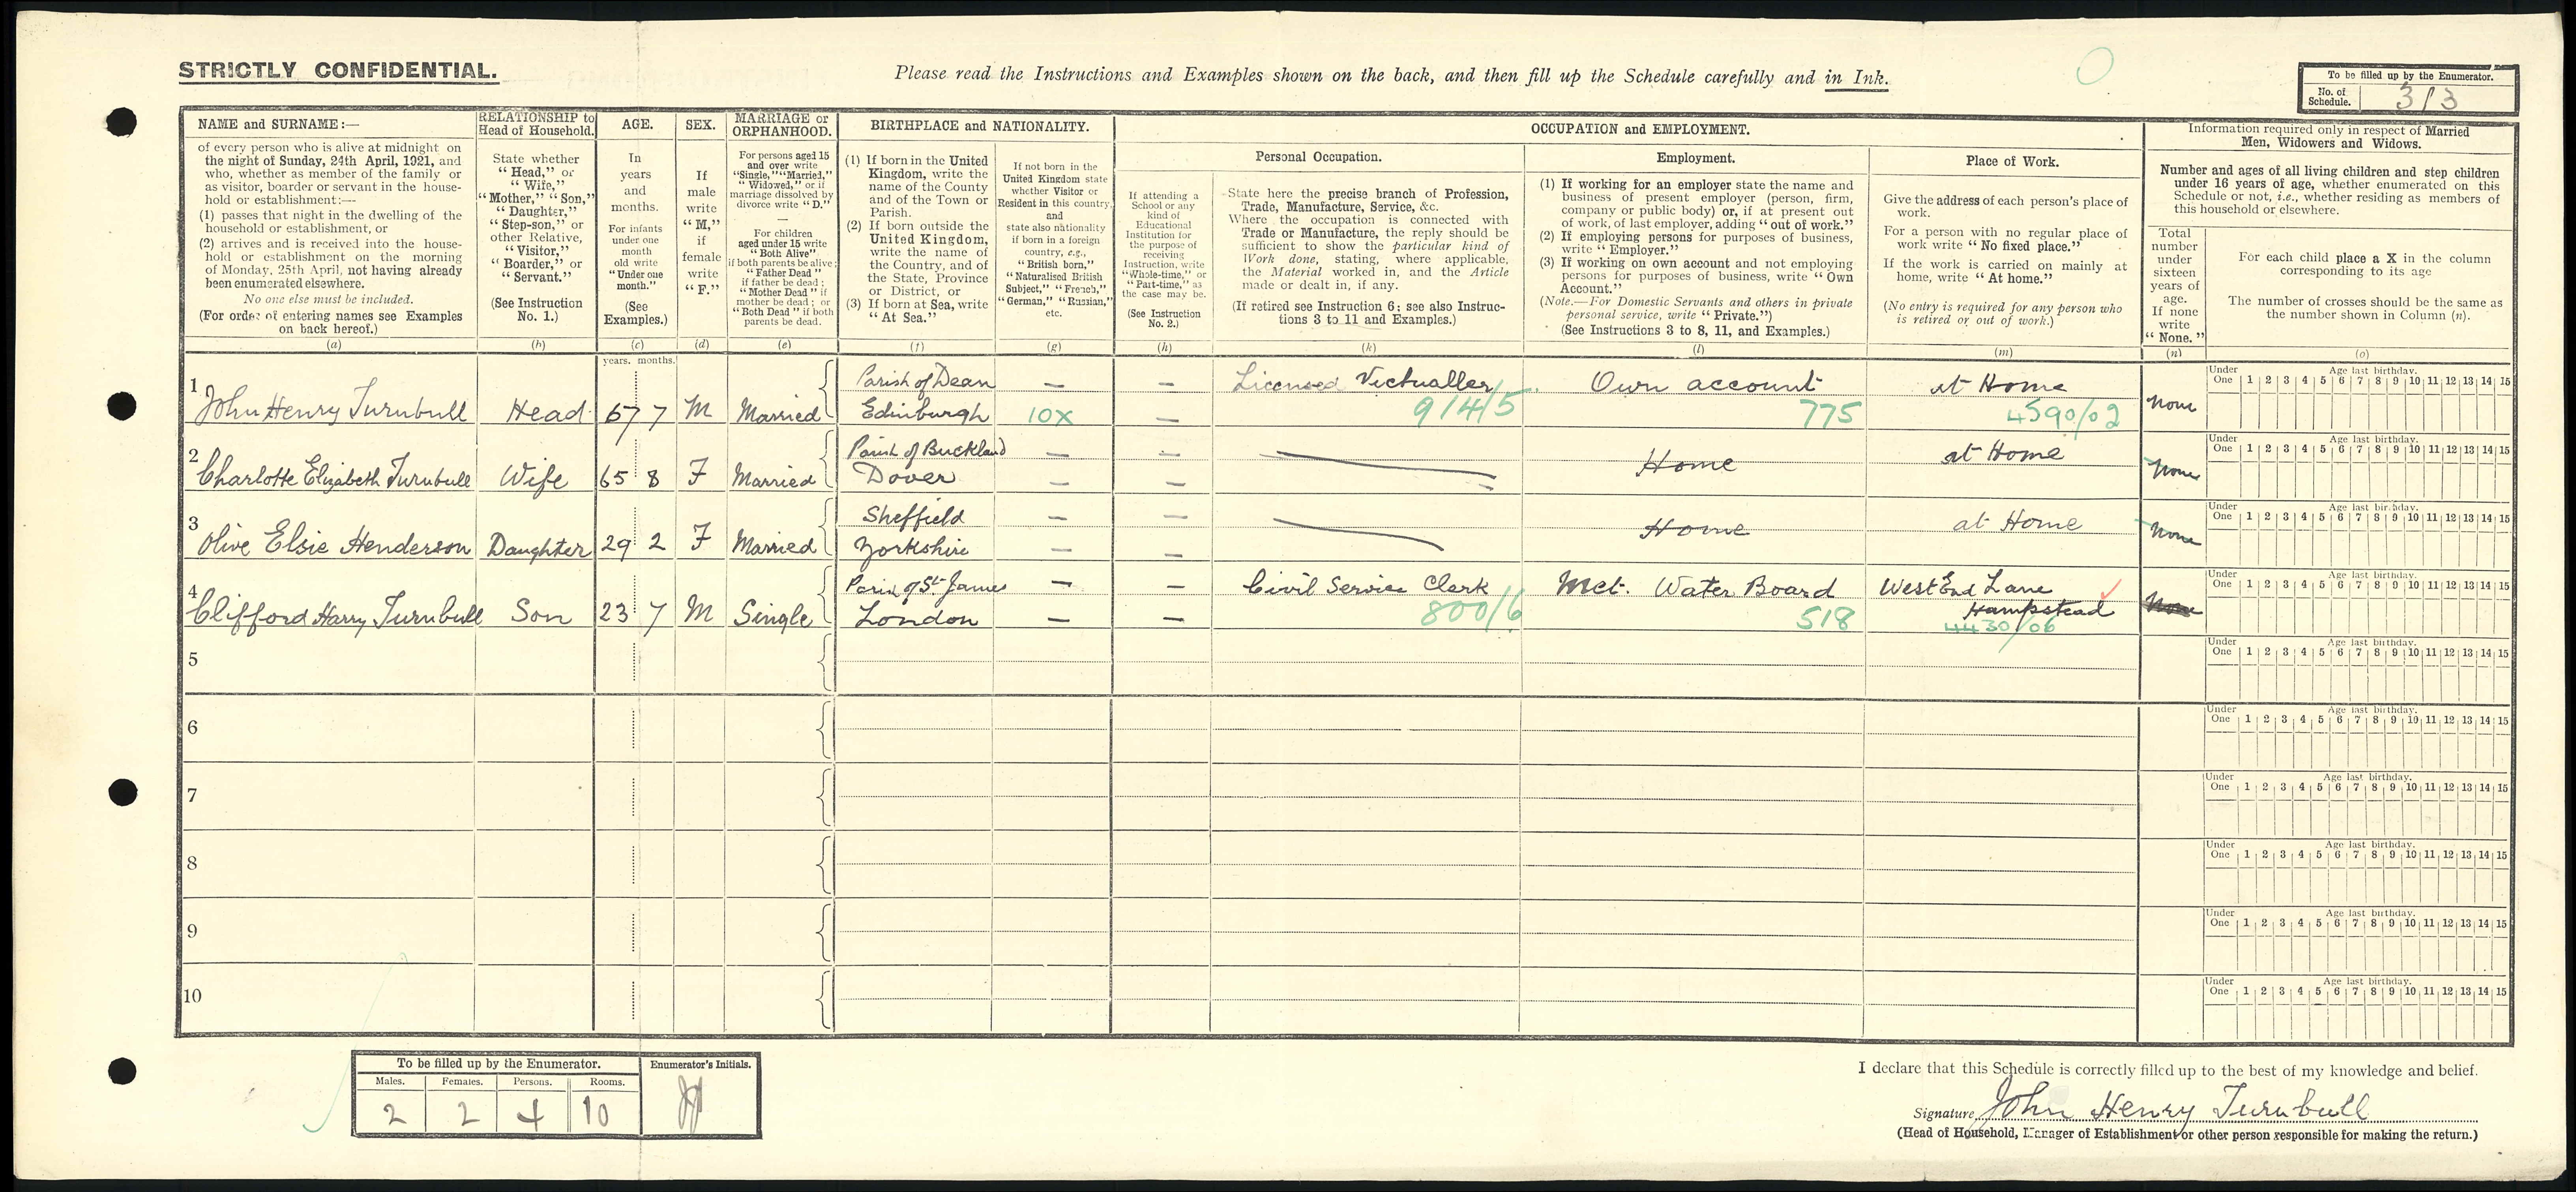 STRICTLY CONFIDENTIAL.
Please read the Instructions and Examples shown on the back, and then fill up the Schedule carefully and in Ink.
To be filled up by the Enumerator.
No. of Schedule. 313
NAME and SURNAME:—
of every person who is alive at midnight on
the night of Sunday, 24th April, 1921, and
who, whether as member of the family or
as visitor, boarder or servant in the house-
hold or establishment:—
(1) passes that night in the dwelling of the
household or establishment, or
(2) arrives and is received into the house-
hold or establishment on the morning
of Monday, 25th April, not having already
been enumerated elsewhere.
No one else must be included.
(For order of entering names see Examples
on back hereof.)
(a)
RELATIONSHIP to
Head of Household.
State whether
"Head," or
"Wife,"
"Mother," "Son,"
"Daughter,"
"Step-son," or
other Relative,
"Visitor,"
"Boarder," or
"Servant."
(See Instruction
No. 1.)
(b)
AGE.
In
years
and
months.
For infants
under one
month
old write
"Under one
month."
(See
Examples.)
(c)
SEX.
If
male
write
"M,"
if
female
write
"F."
(d)
MARRIAGE or
ORPHANHOOD.
For persons aged 15
and over write
"Single," "Married,"
"Widowed," or if
marriage dissolved by
divorce write "D."
—
For children
aged under 15 write
"Both Alive"
if both parents be alive;
"Father Dead"
if father be dead;
"Mother Dead" if
mother be dead; or
"Both Dead" if both
parents be dead.
(e)
BIRTHPLACE and NATIONALITY.
(1) If born in the United
Kingdom, write the
name of the County
and of the Town or
Parish.
(2) If born outside the
United Kingdom,
write the name of
the Country, and of
the State, Province
or District, or
(3) If born at Sea, write
"At Sea."
(f)
If not born in the
United Kingdom state
whether Visitor or
Resident in this country,
and
state also nationality
if born in a foreign
country, e.g.,
"British born,"
"Naturalised British
Subject," "French,"
"German," "Russian,"
etc.
(g)
OCCUPATION and EMPLOYMENT.
If attending a
School or any
kind of
Educational
Institution for
the purpose of
receiving
Instruction, write
"Whole-time," or
"Part-time," as
the case may be.
(See Instruction
No. 2.)
(h)
Personal Occupation.
State here the precise branch of Profession,
Trade, Manufacture, Service, &c.
Where the occupation is connected with
Trade or Manufacture, the reply should be
sufficient to show the particular kind of
Work done, stating, where applicable,
the Material worked in, and the Article
made or dealt in, if any.
(If retired see Instruction 6; see also Instruc-
tions 3 to 11 and Examples.)
(k)
Employment.
(1) If working for an employer state the name and
business of present employer (person, firm,
company or public body) or, if at present out
of work, of last employer, adding "out of work."
(2) If employing persons for purposes of business,
write "Employer."
(3) If working on own account and not employing
persons for purposes of business, write "Own
Account."
(Note.—For Domestic Servants and others in private
personal service, write "Private.")
(See Instructions 3 to 8, 11, and Examples.)
(l)
Place of Work.
Give the address of each person's place of
work.
For a person with no regular place of
work write "No fixed place."
If the work is carried on mainly at
home, write "At home."
(No entry is required for any person who
is retired or out of work.)
(m)
Information required only in respect of Married
Men, Widowers and Widows.
Number and ages of all living children and step children
under 16 years of age, whether enumerated on this
Schedule or not, i.e., whether residing as members of
this household or elsewhere.
Total
number
under
sixteen
years of
age.
If none
write
"None."
(n)
For each child place a X in the column
corresponding to its age
The number of crosses should be the same as
the number shown in Column (n).
(o)
years. months.
Under One Age last birthday. 1 2 3 4 5 6 7 8 9 10 11 12 13 14 15
1 Parish of Dean — — Licensed Victualler Own account at Home
John Henry Turnbull Head 67 7 M Married Edinburgh 10X — 914/5 775 4590/02 None
Under One Age last birthday. 1 2 3 4 5 6 7 8 9 10 11 12 13 14 15
2 Parish of Buckland — — at Home
Charlotte Elizabeth Turnbull Wife 65 8 F Married Dover — — Home None
Under One Age last birthday. 1 2 3 4 5 6 7 8 9 10 11 12 13 14 15
3 Sheffield — — at Home
Olive Elsie Henderson Daughter 29 2 F Married Yorkshire — — Home None
Under One Age last birthday. 1 2 3 4 5 6 7 8 9 10 11 12 13 14 15
4 Parish of St James — — Civil Service Clerk Met. Water Board West End Lane
Clifford Harry Turnbull Son 23 7 M Single London — — 800/6 518 Hampstead None
4430/06
5 Under One Age last birthday. 1 2 3 4 5 6 7 8 9 10 11 12 13 14 15
6 Under One Age last birthday. 1 2 3 4 5 6 7 8 9 10 11 12 13 14 15
7 Under One Age last birthday. 1 2 3 4 5 6 7 8 9 10 11 12 13 14 15
8 Under One Age last birthday. 1 2 3 4 5 6 7 8 9 10 11 12 13 14 15
9 Under One Age last birthday. 1 2 3 4 5 6 7 8 9 10 11 12 13 14 15
10 Under One Age last birthday. 1 2 3 4 5 6 7 8 9 10 11 12 13 14 15
To be filled up by the Enumerator. Enumerator's Initials.
Males. Females. Persons. Rooms.
2 2 4 10
I declare that this Schedule is correctly filled up to the best of my knowledge and belief.
Signature John Henry Turnbull
(Head of Household, Manager of Establishment or other person responsible for making the return.)